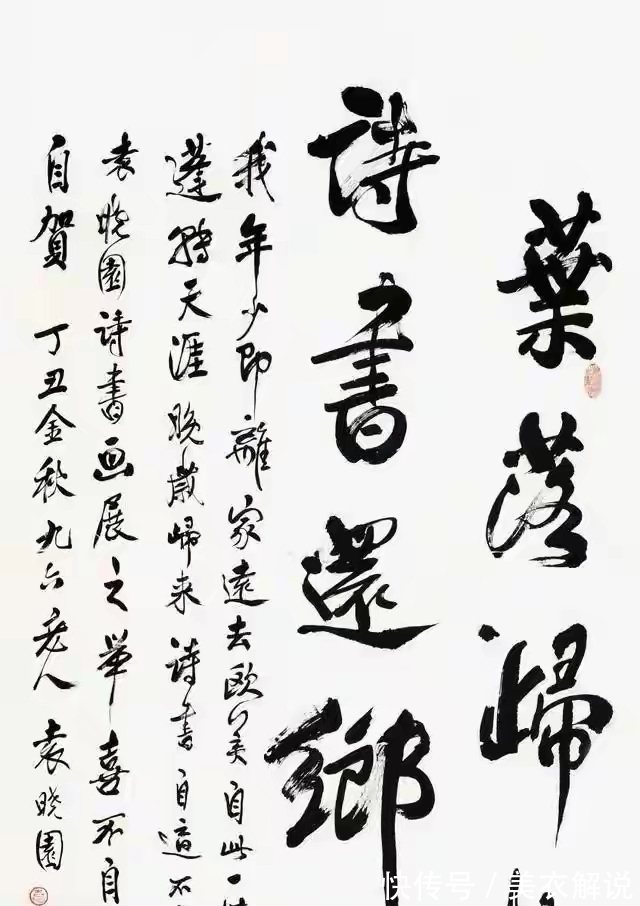 葉落歸
詩書還鄉
我年少即離家遠去歐美自此一
蓬轉天涯晚歲歸来詩書自適不
袁晓園詩書画展之舉喜不自
自賀 丁丑金秋九六老人 袁晓園
快传号 / 美衣解说